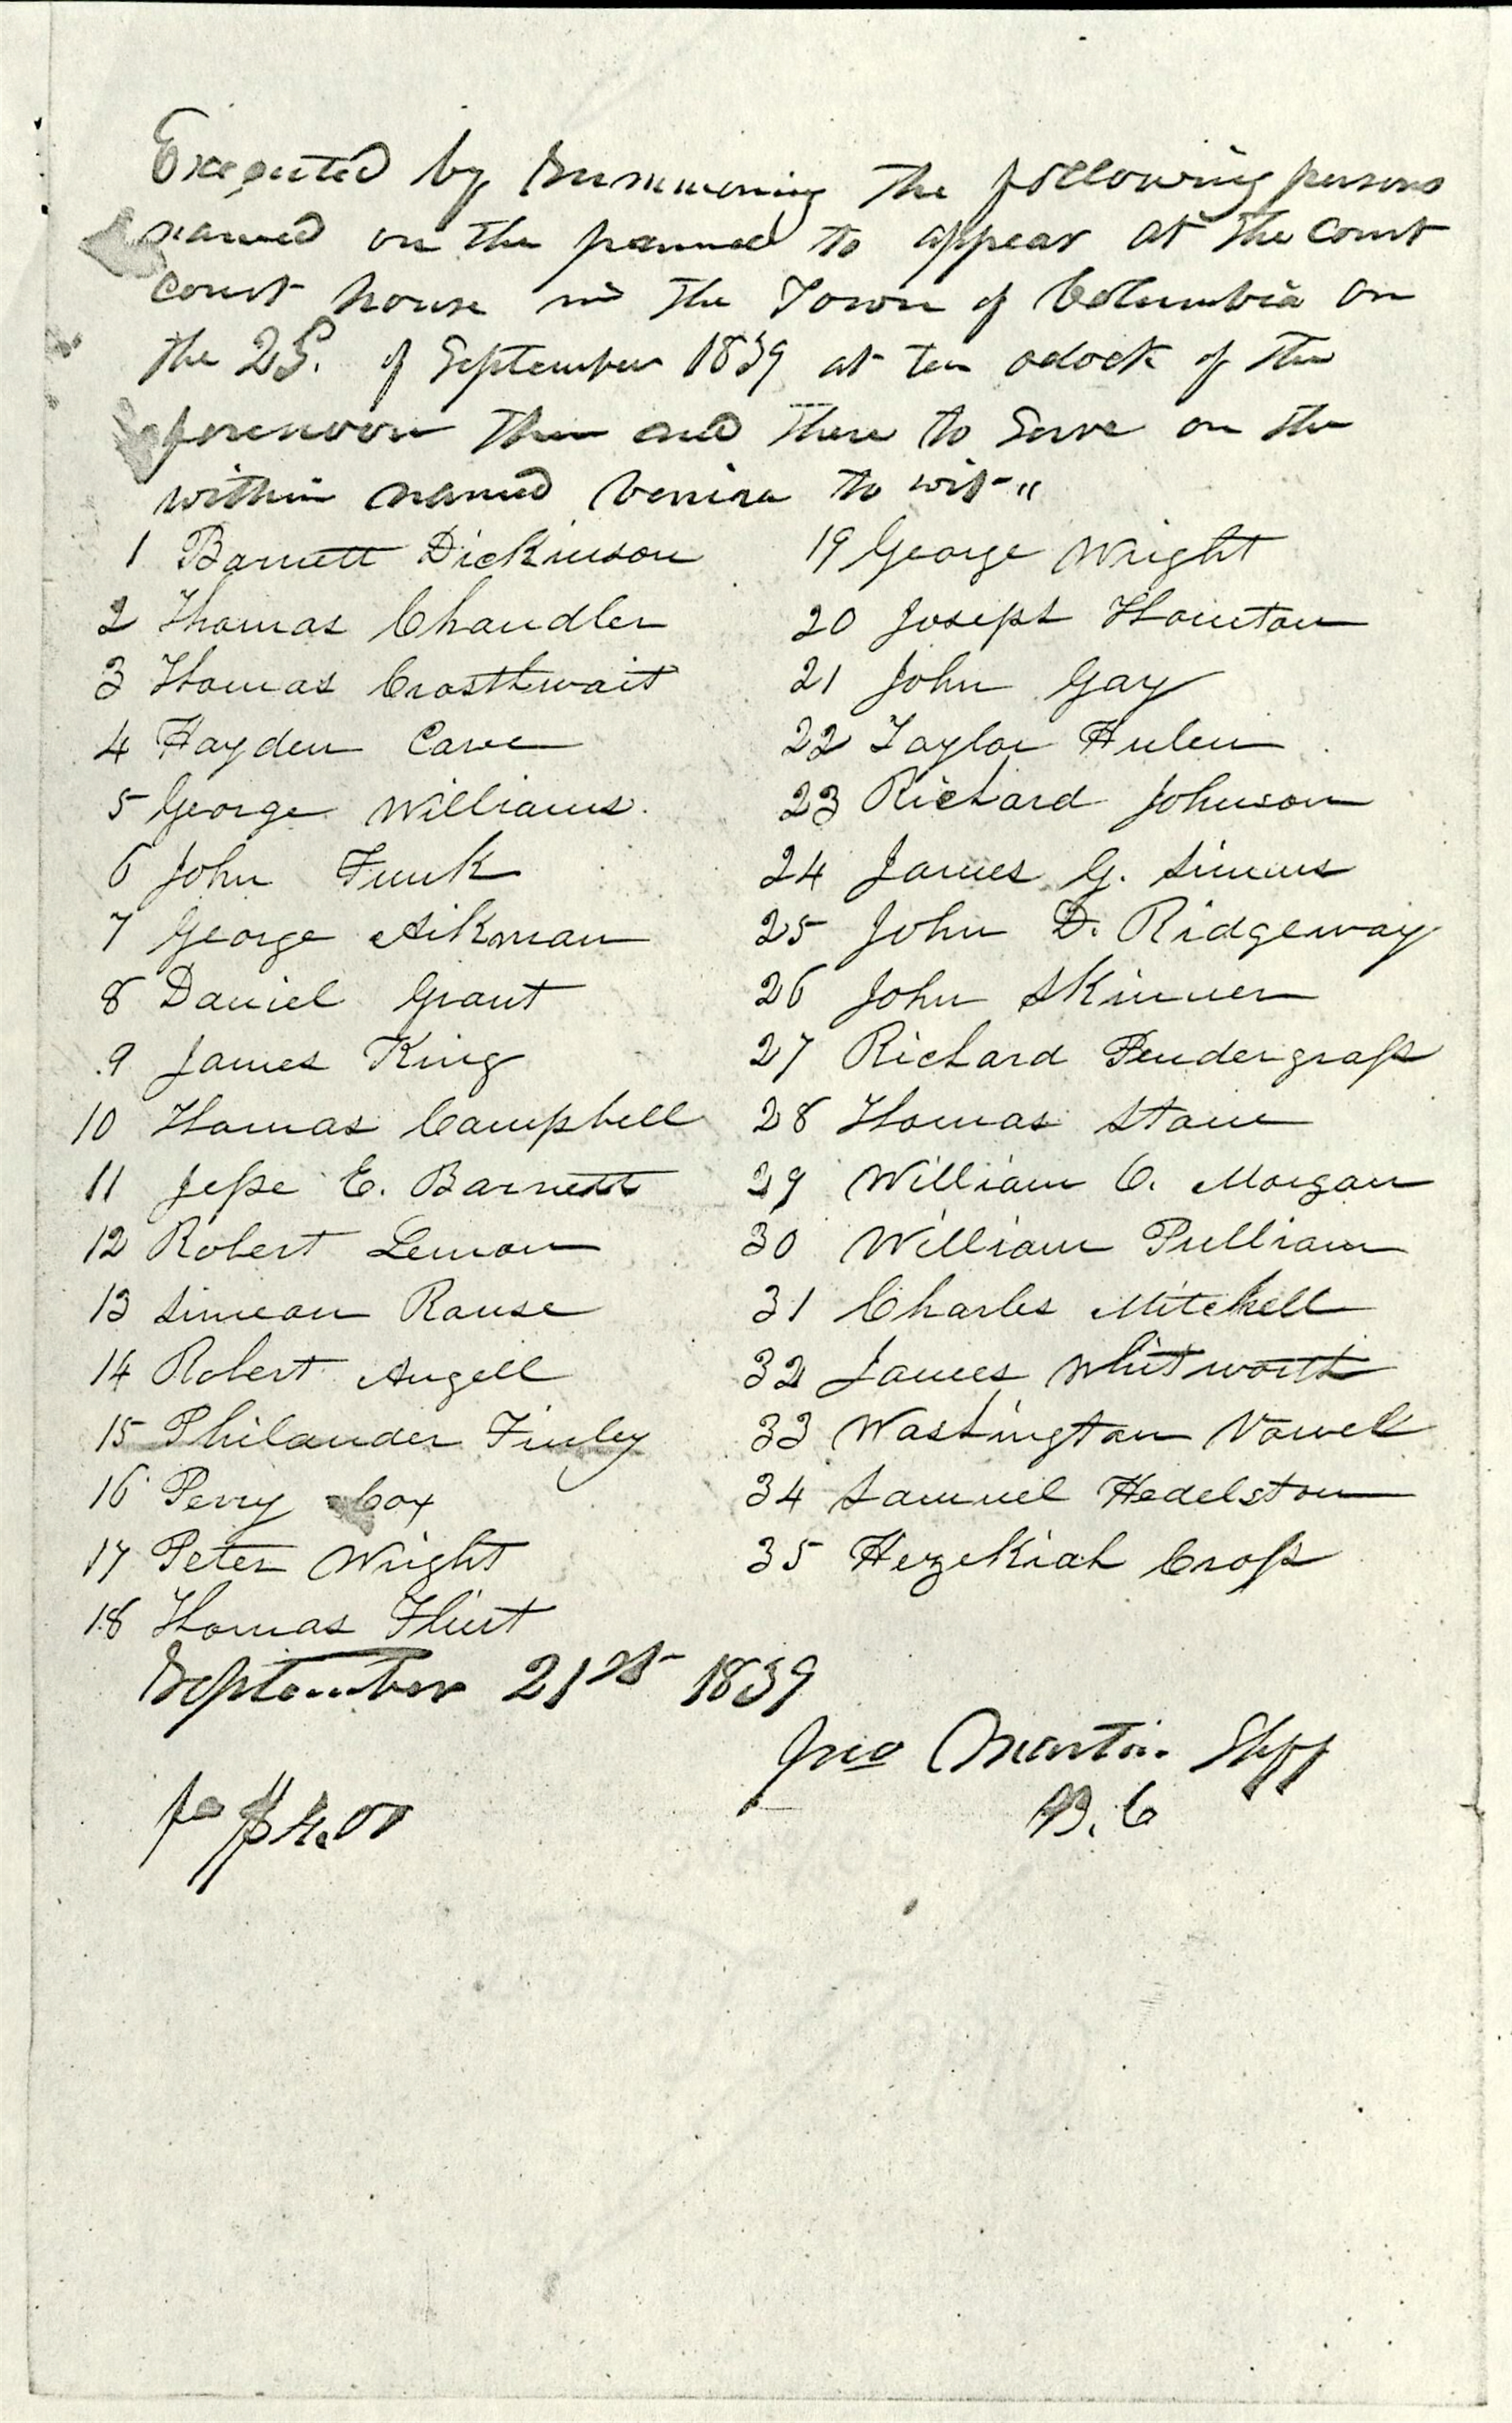 Executed by Summoning the following persons
named on the pannel to appear at the Court
Court house in the Town of Columbia on
the 25. of September 1839 at ten oclock of the
forenoon then and there to Serve on the
within named venira to wit "
1 Barnett Dickinson
2 Thomas Chandler
3 Thomas Crosthwait
4 Hayden Cave
5 George Williams.
6 John Funk
7 George Aikman
8 Daniel Grant
9 James King
10 Thomas Campbell
11 Jesse E. Barnett
12 Robert Lemon
13 Simeon Rouse
14 Robert Angell
15 Philander Finley
16 Perry Cox
17 Peter Wright
18 Thomas Flint
19 George Wright
20 Joseph Hounton
21 John Gay
22 Taylor Hulen
23 Richard Johnson
24 James G. Simms
25 John D. Ridgeway
26 John Skinner
27 Richard Pendergrass
28 Thomas Stone
29 William C. Morgan
30 William Pulliam
31 Charles Mitchell
32 James Whitworth
33 Washington Vowell
34 Samuel Hedelston
35 Hezekiah Cross
September 21st 1839
Jno Martin Shff
B. C
$4.00